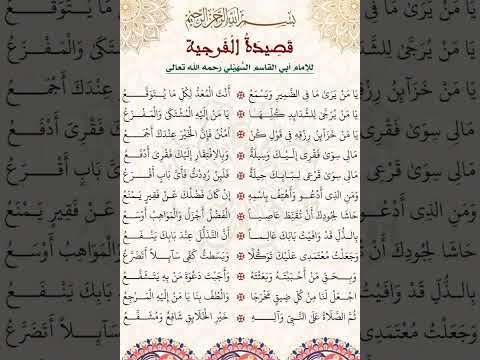 بِسْمِ اللهِ الرَّحْمٰنِ الرَّحِيْمِ
قصيدةُ الفَرجية
للإمام أبي القاسم السُّهَيْلي رحمه الله تعالى
يَا مَنْ يَرَىٰ مَا فِي الضَّمِيرِ وَيَسْمَعُ أَنْتَ الْمُعَدُّ لِكُلِّ مَا يُتَوَقَّعُ
يَا مَنْ يُرَجَّىٰ لِلشَّدَايِدِ كُلِّهَا يَا مَنْ إِلَيْهِ الْمُشْتَكَىٰ وَالْمَفْزَعُ
يَا مَنْ خَزَايِنُ رِزْقِهِ فِي قَوْلِ كُنْ اُمْنُنْ فَإِنَّ الْخَيْرَ عِنْدَكَ أَجْمَعُ
مَالِي سِوَىٰ فَقْرِي إِلَيْكَ وَسِيلَةٌ وَبِالْاِفْتِقَارِ إِلَيْكَ فَقْرِي أَدْفَعُ
مَالِي سِوَىٰ قَرْعِي لِبَابِكَ حِيلَةٌ فَلَئِنْ رَدَدْتَ فَأَيَّ بَابٍ أَقْرَعُ
وَمَنِ الَّذِي أَدْعُو وَأَهْتِفُ بِاسْمِهِ إِنْ كَانَ فَضْلُكَ عَنْ فَقِيرٍ يُمْنَعُ
حَاشَا لِجُودِكَ أَنْ تُقَنِّطَ عَاصِيًا الْفَضْلُ أَجْزَلُ وَالْمَوَاهِبُ أَوْسَعُ
بِالذُّلِّ قَدْ وَافَيْتُ بَابَكَ عَالِمًا أَنَّ التَّذَلُّلَ عِنْدَ بَابِكَ يَنْفَعُ
وَجَعَلْتُ مُعْتَمَدِي عَلَيْكَ تَوَكُّلًا وَبَسَطْتُ كَفِّي سَايِلًا أَتَضَرَّعُ
وَبِحَقِّ مَنْ أَحْبَبْتَهُ وَبَعَثْتَهُ وَأَجَبْتَ دَعْوَةَ مَنْ بِهِ يَتَشَفَّعُ
اجْعَلْ لَنَا مِنْ كُلِّ ضِيقٍ مَخْرَجًا وَالْطُفْ بِنَا يَا مَنْ إِلَيْهِ الْمَرْجِعُ
ثُمَّ الصَّلَاةُ عَلَى النَّبِيِّ وَآلِهِ خَيْرِ الْخَلَايِقِ شَافِعٌ وَمُشَفَّعُ